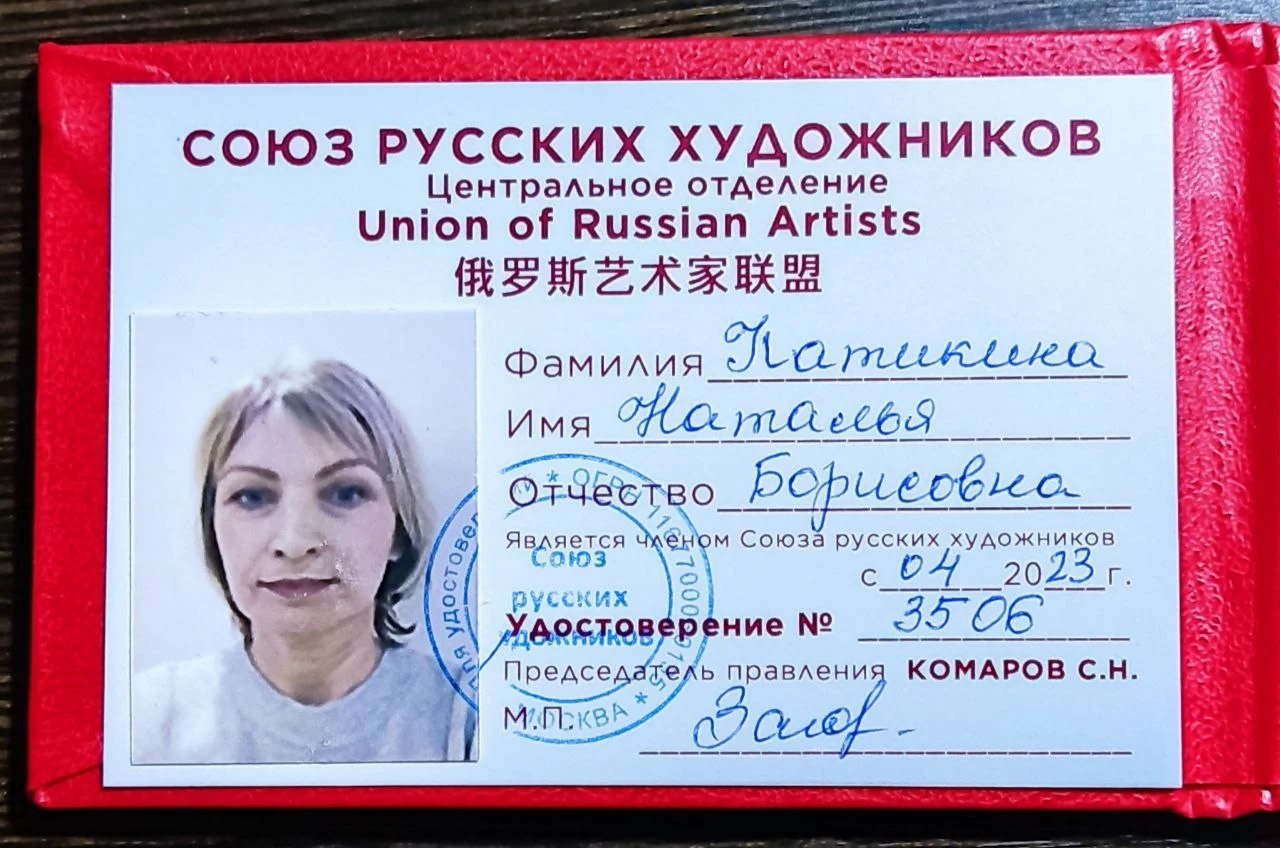 СОЮЗ РУССКИХ ХУДОЖНИКОВ
Центральное отделение
Union of Russian Artists
俄罗斯艺术家联盟
Фамилия Патикина
Имя Наталья
Отчество Борисовна
Является членом Союза русских художников
с 04 2023 г.
Удостоверение № 3506
Председатель правления КОМАРОВ С.Н.
М.П.
Союз
русских
художников
МОСКВА